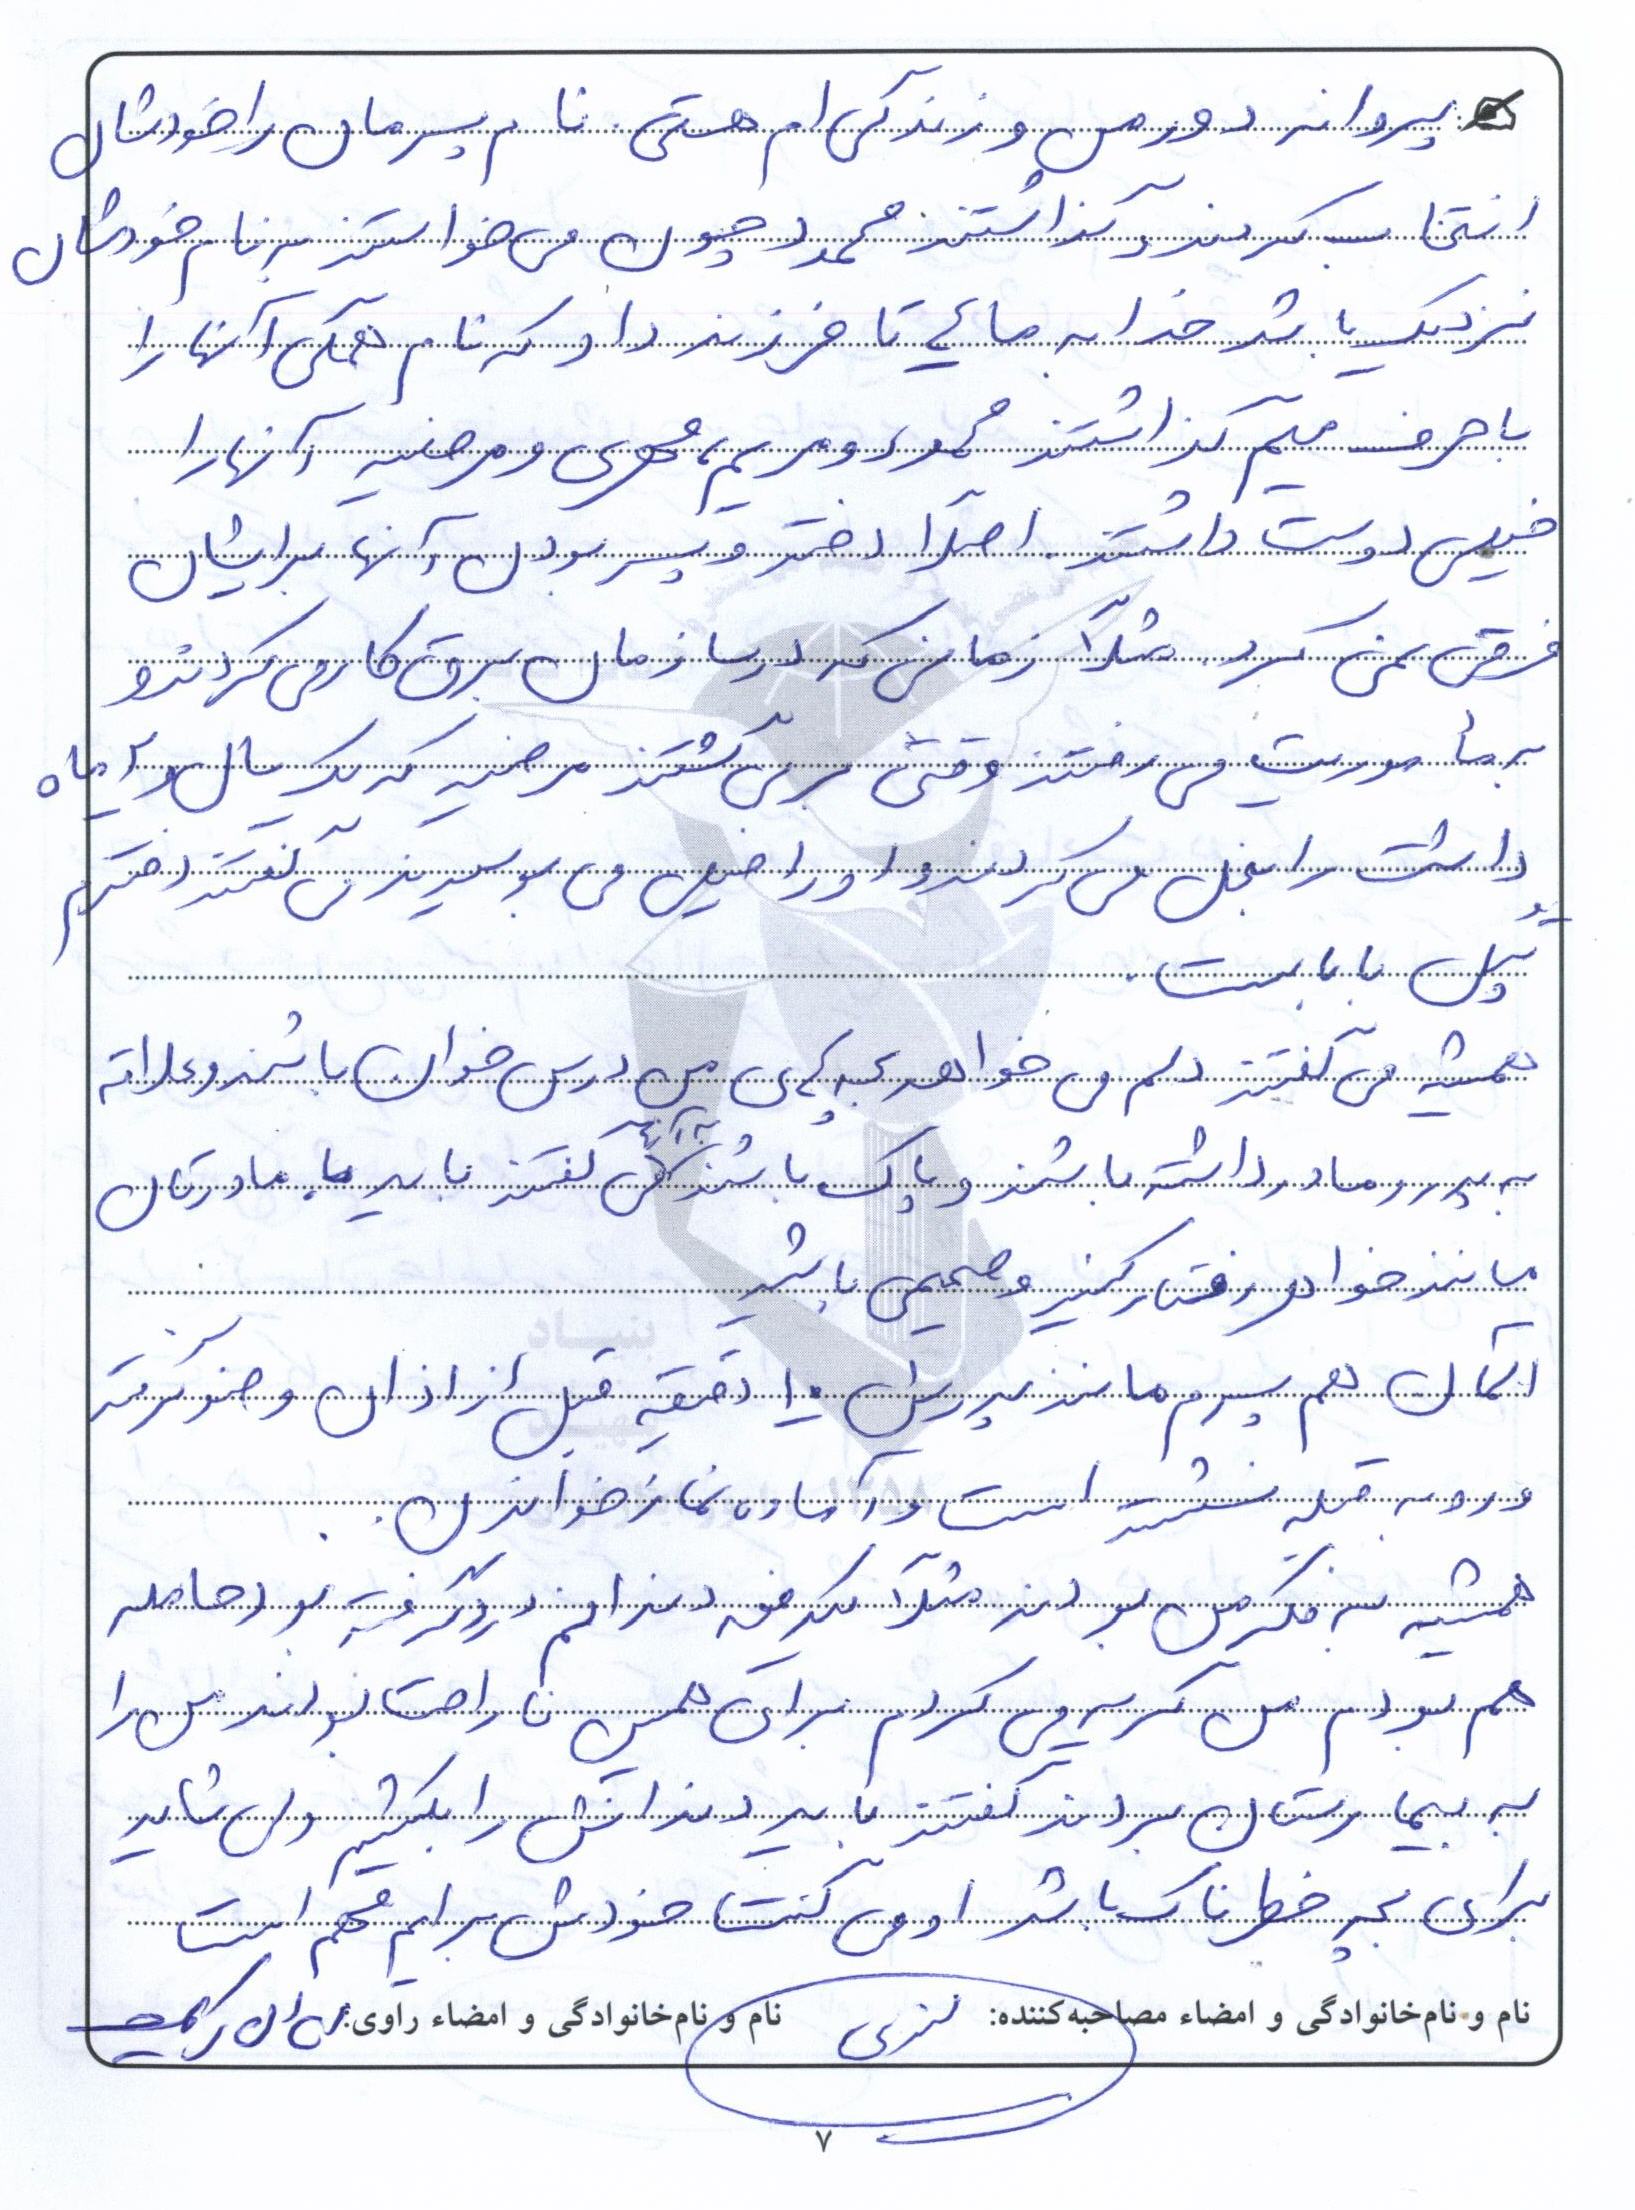 پروانه دور من و زندگی ام هستی. نام پسرمان را خودشان
انتخاب کردند و گذاشتند محمد چون می خواستند به نام خودشان
نزدیک باشد خدا به ما ۴ تا فرزند داد که نام همگی آنها را
با حرف میم گذاشتند محمد و مریم، مهری و مرضیه آنها را
خیلی دوست داشتند. اصلاً دختر و پسر بودن آنها برایشان
فرقی نمی کرد. مثلاً زمانی که در سازمان برق کار می کردند و
به مأموریت می رفتند وقتی بر می گشتند مرضیه که یک سال و ۲ ماه
داشت را بغل می کردند و او را خیلی می بوسیدند می گفتند دخترم
گل باباست.
همیشه می گفتند دلم می خواهد بچه های من درس خوان باشند و علاقه
به پدر و مادر داشته باشند و پاک باشند می گفتند باید با مادرتان
مانند خواهر رفتار کنید و صمیمی باشید
الآن هم پسرم مانند پدرش ۱۰ دقیقه قبل از اذان وضو گرفته
و رو به قبله نشسته است و آماده نماز خواندن.
همیشه به فکر من بودند مثلاً یکدفعه دندانم درد گرفته بود حامله
هم بودم من گریه می کردم برای همین ناراحت بودند من را
به بیمارستان بردند گفتند باید دندانش را بکشیم ولی شاید
برای بچه خطرناک باشد او می گفت خودش برایم مهم است
نام و نام‌خانوادگی و امضاء مصاحبه‌کننده: نام و نام‌خانوادگی و امضاء راوی:
بنیاد
شهید
۱۳۵۸
۷